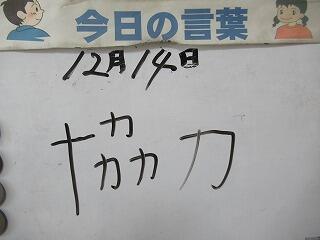 今日の言葉
12月14日
協力